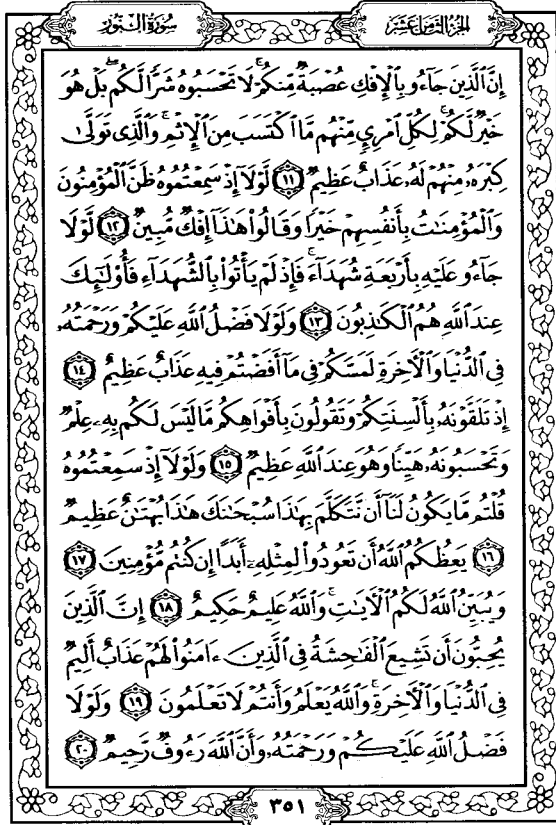 الجزء الثامن عشر
سورة النور
إِنَّ ٱلَّذِينَ جَآءُو بِٱلْإِفْكِ عُصْبَةٌ مِّنكُمْ ۚ لَا تَحْسَبُوهُ شَرًّا لَّكُم ۖ بَلْ هُوَ
خَيْرٌ لَّكُمْ ۚ لِكُلِّ ٱمْرِئٍ مِّنْهُم مَّا ٱكْتَسَبَ مِنَ ٱلْإِثْمِ ۚ وَٱلَّذِى تَوَلَّىٰ
كِبْرَهُۥ مِنْهُمْ لَهُۥ عَذَابٌ عَظِيمٌ ﴿١١﴾ لَّوْلَآ إِذْ سَمِعْتُمُوهُ ظَنَّ ٱلْمُؤْمِنُونَ
وَٱلْمُؤْمِنَٰتُ بِأَنفُسِهِمْ خَيْرًا وَقَالُوا۟ هَٰذَآ إِفْكٌ مُّبِينٌ ﴿١٢﴾ لَّوْلَا
جَآءُو عَلَيْهِ بِأَرْبَعَةِ شُهَدَآءَ ۚ فَإِذْ لَمْ يَأْتُوا۟ بِٱلشُّهَدَآءِ فَأُو۟لَٰٓئِكَ
عِندَ ٱللَّهِ هُمُ ٱلْكَٰذِبُونَ ﴿١٣﴾ وَلَوْلَا فَضْلُ ٱللَّهِ عَلَيْكُمْ وَرَحْمَتُهُۥ
فِى ٱلدُّنْيَا وَٱلْءَاخِرَةِ لَمَسَّكُمْ فِى مَآ أَفَضْتُمْ فِيهِ عَذَابٌ عَظِيمٌ ﴿١٤﴾
إِذْ تَلَقَّوْنَهُۥ بِأَلْسِنَتِكُمْ وَتَقُولُونَ بِأَفْوَاهِكُم مَّا لَيْسَ لَكُم بِهِۦ عِلْمٌ
وَتَحْسَبُونَهُۥ هَيِّنًا وَهُوَ عِندَ ٱللَّهِ عَظِيمٌ ﴿١٥﴾ وَلَوْلَآ إِذْ سَمِعْتُمُوهُ
قُلْتُم مَّا يَكُونُ لَنَآ أَن نَّتَكَلَّمَ بِهَٰذَا سُبْحَٰنَكَ هَٰذَا بُهْتَٰنٌ عَظِيمٌ
﴿١٦﴾ يَعِظُكُمُ ٱللَّهُ أَن تَعُودُوا۟ لِمِثْلِهِۦٓ أَبَدًا إِن كُنتُم مُّؤْمِنِينَ ﴿١٧﴾
وَيُبَيِّنُ ٱللَّهُ لَكُمُ ٱلْءَايَٰتِ ۚ وَٱللَّهُ عَلِيمٌ حَكِيمٌ ﴿١٨﴾ إِنَّ ٱلَّذِينَ
يُحِبُّونَ أَن تَشِيعَ ٱلْفَٰحِشَةُ فِى ٱلَّذِينَ ءَامَنُوا۟ لَهُمْ عَذَابٌ أَلِيمٌ
فِى ٱلدُّنْيَا وَٱلْءَاخِرَةِ ۚ وَٱللَّهُ يَعْلَمُ وَأَنتُمْ لَا تَعْلَمُونَ ﴿١٩﴾ وَلَوْلَا
فَضْلُ ٱللَّهِ عَلَيْكُمْ وَرَحْمَتُهُۥ وَأَنَّ ٱللَّهَ رَءُوفٌ رَّحِيمٌ ﴿٢٠﴾
٣٥١